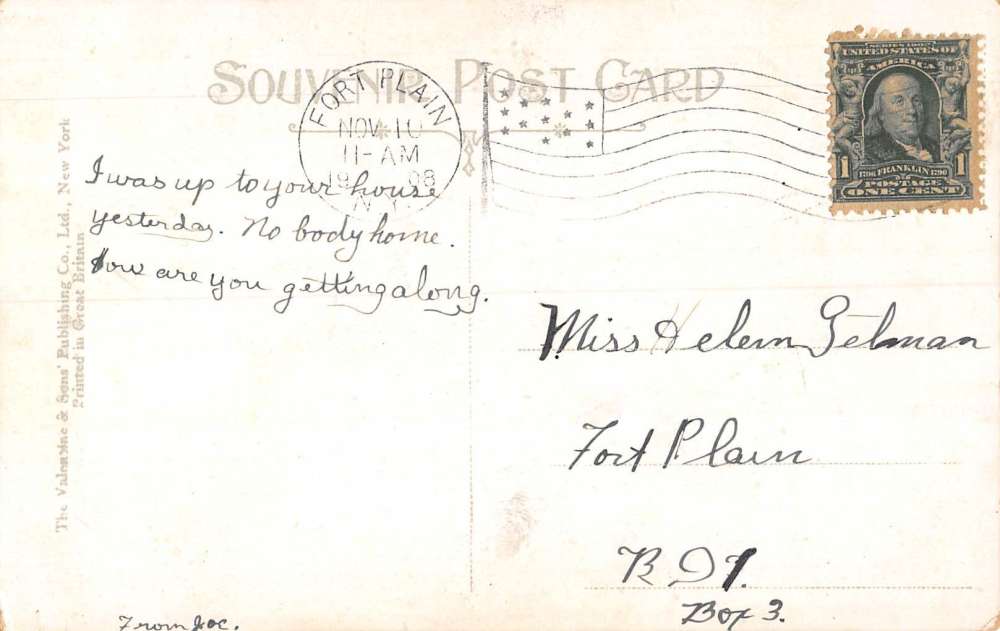 SOUVENIR POST CARD
FORT PLAIN
NOV 10
11-AM
1908
N.Y.
SERIES 1902
UNITED STATES OF
AMERICA
1 1
1706 FRANKLIN 1790
POSTAGE
ONE CENT
The Valentine & Sons' Publishing Co., Ltd., New York
Printed in Great Britain
I was up to your house
yesterday. No body home.
How are you getting along.
From Joe.
Miss Helen Gelman
Fort Plain
R D 1.
Box 3.